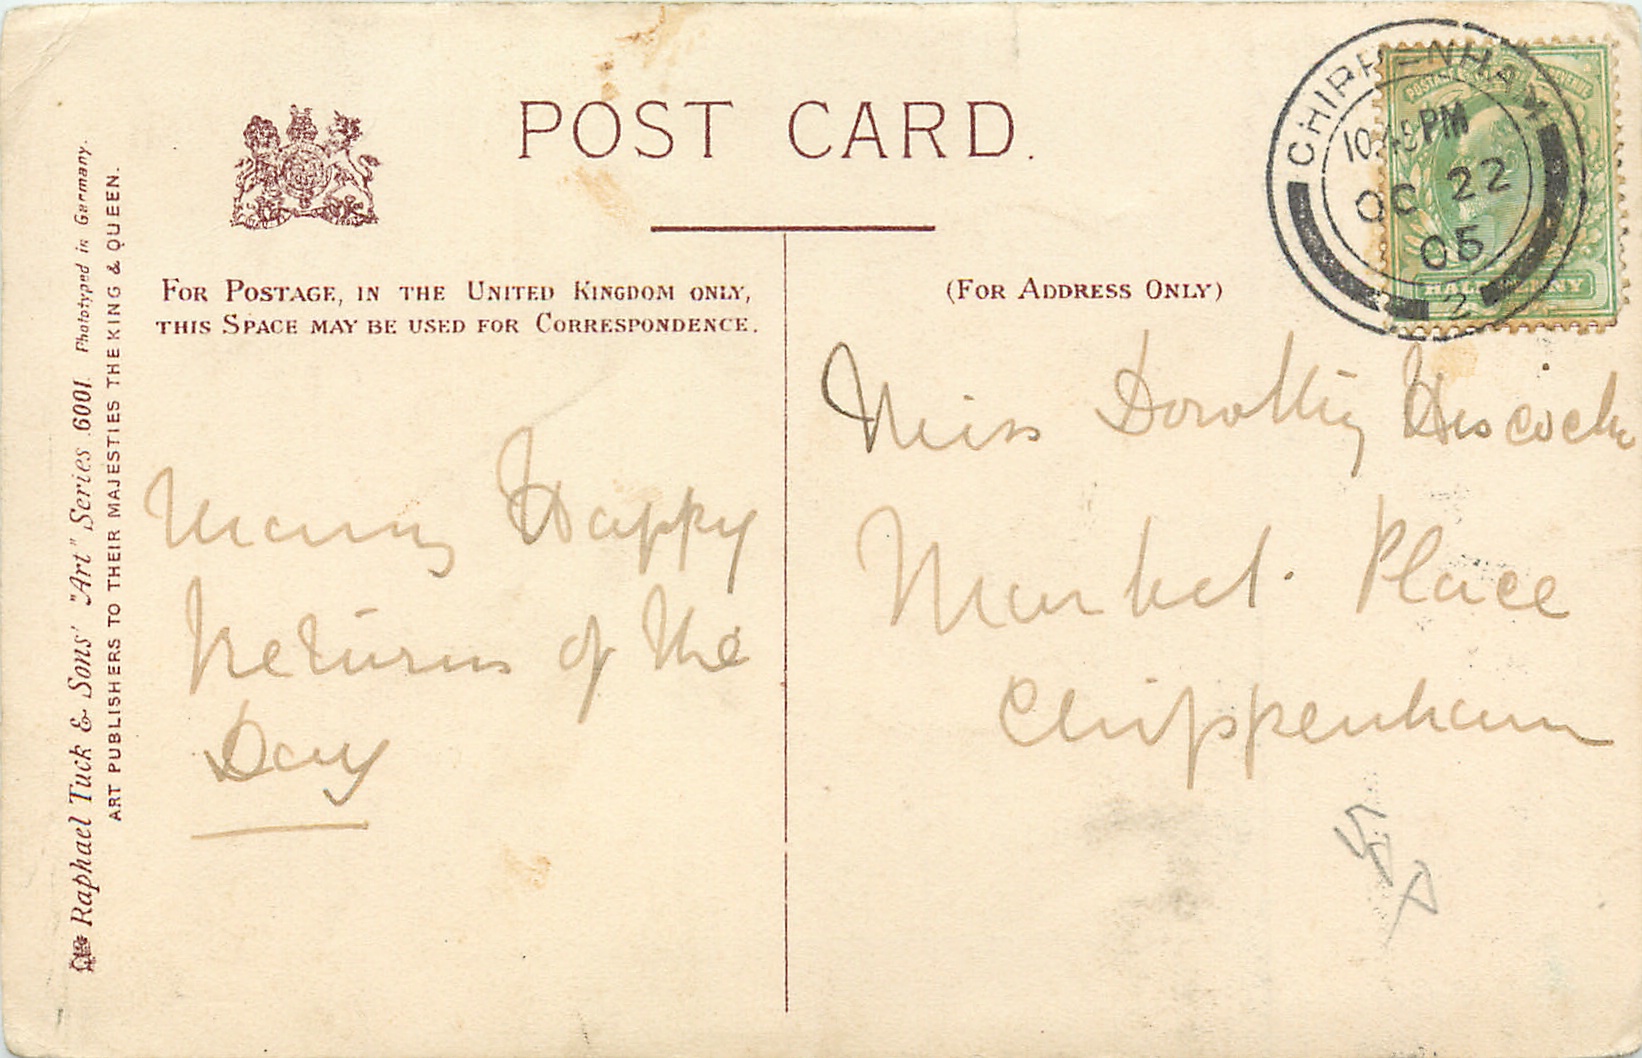 POST CARD.
FOR POSTAGE, IN THE UNITED KINGDOM ONLY,
THIS SPACE MAY BE USED FOR CORRESPONDENCE.
(FOR ADDRESS ONLY)
Many Happy
Returns of the
Day
Miss Dorothy Hiscock
Market Place
Chippenham
CHIPPENHAM
PM
OC 22
05
2
HALFPENNY
Raphael Tuck & Sons' "Art" Series 6001. Phototyped in Germany.
ART PUBLISHERS TO THEIR MAJESTIES THE KING & QUEEN.